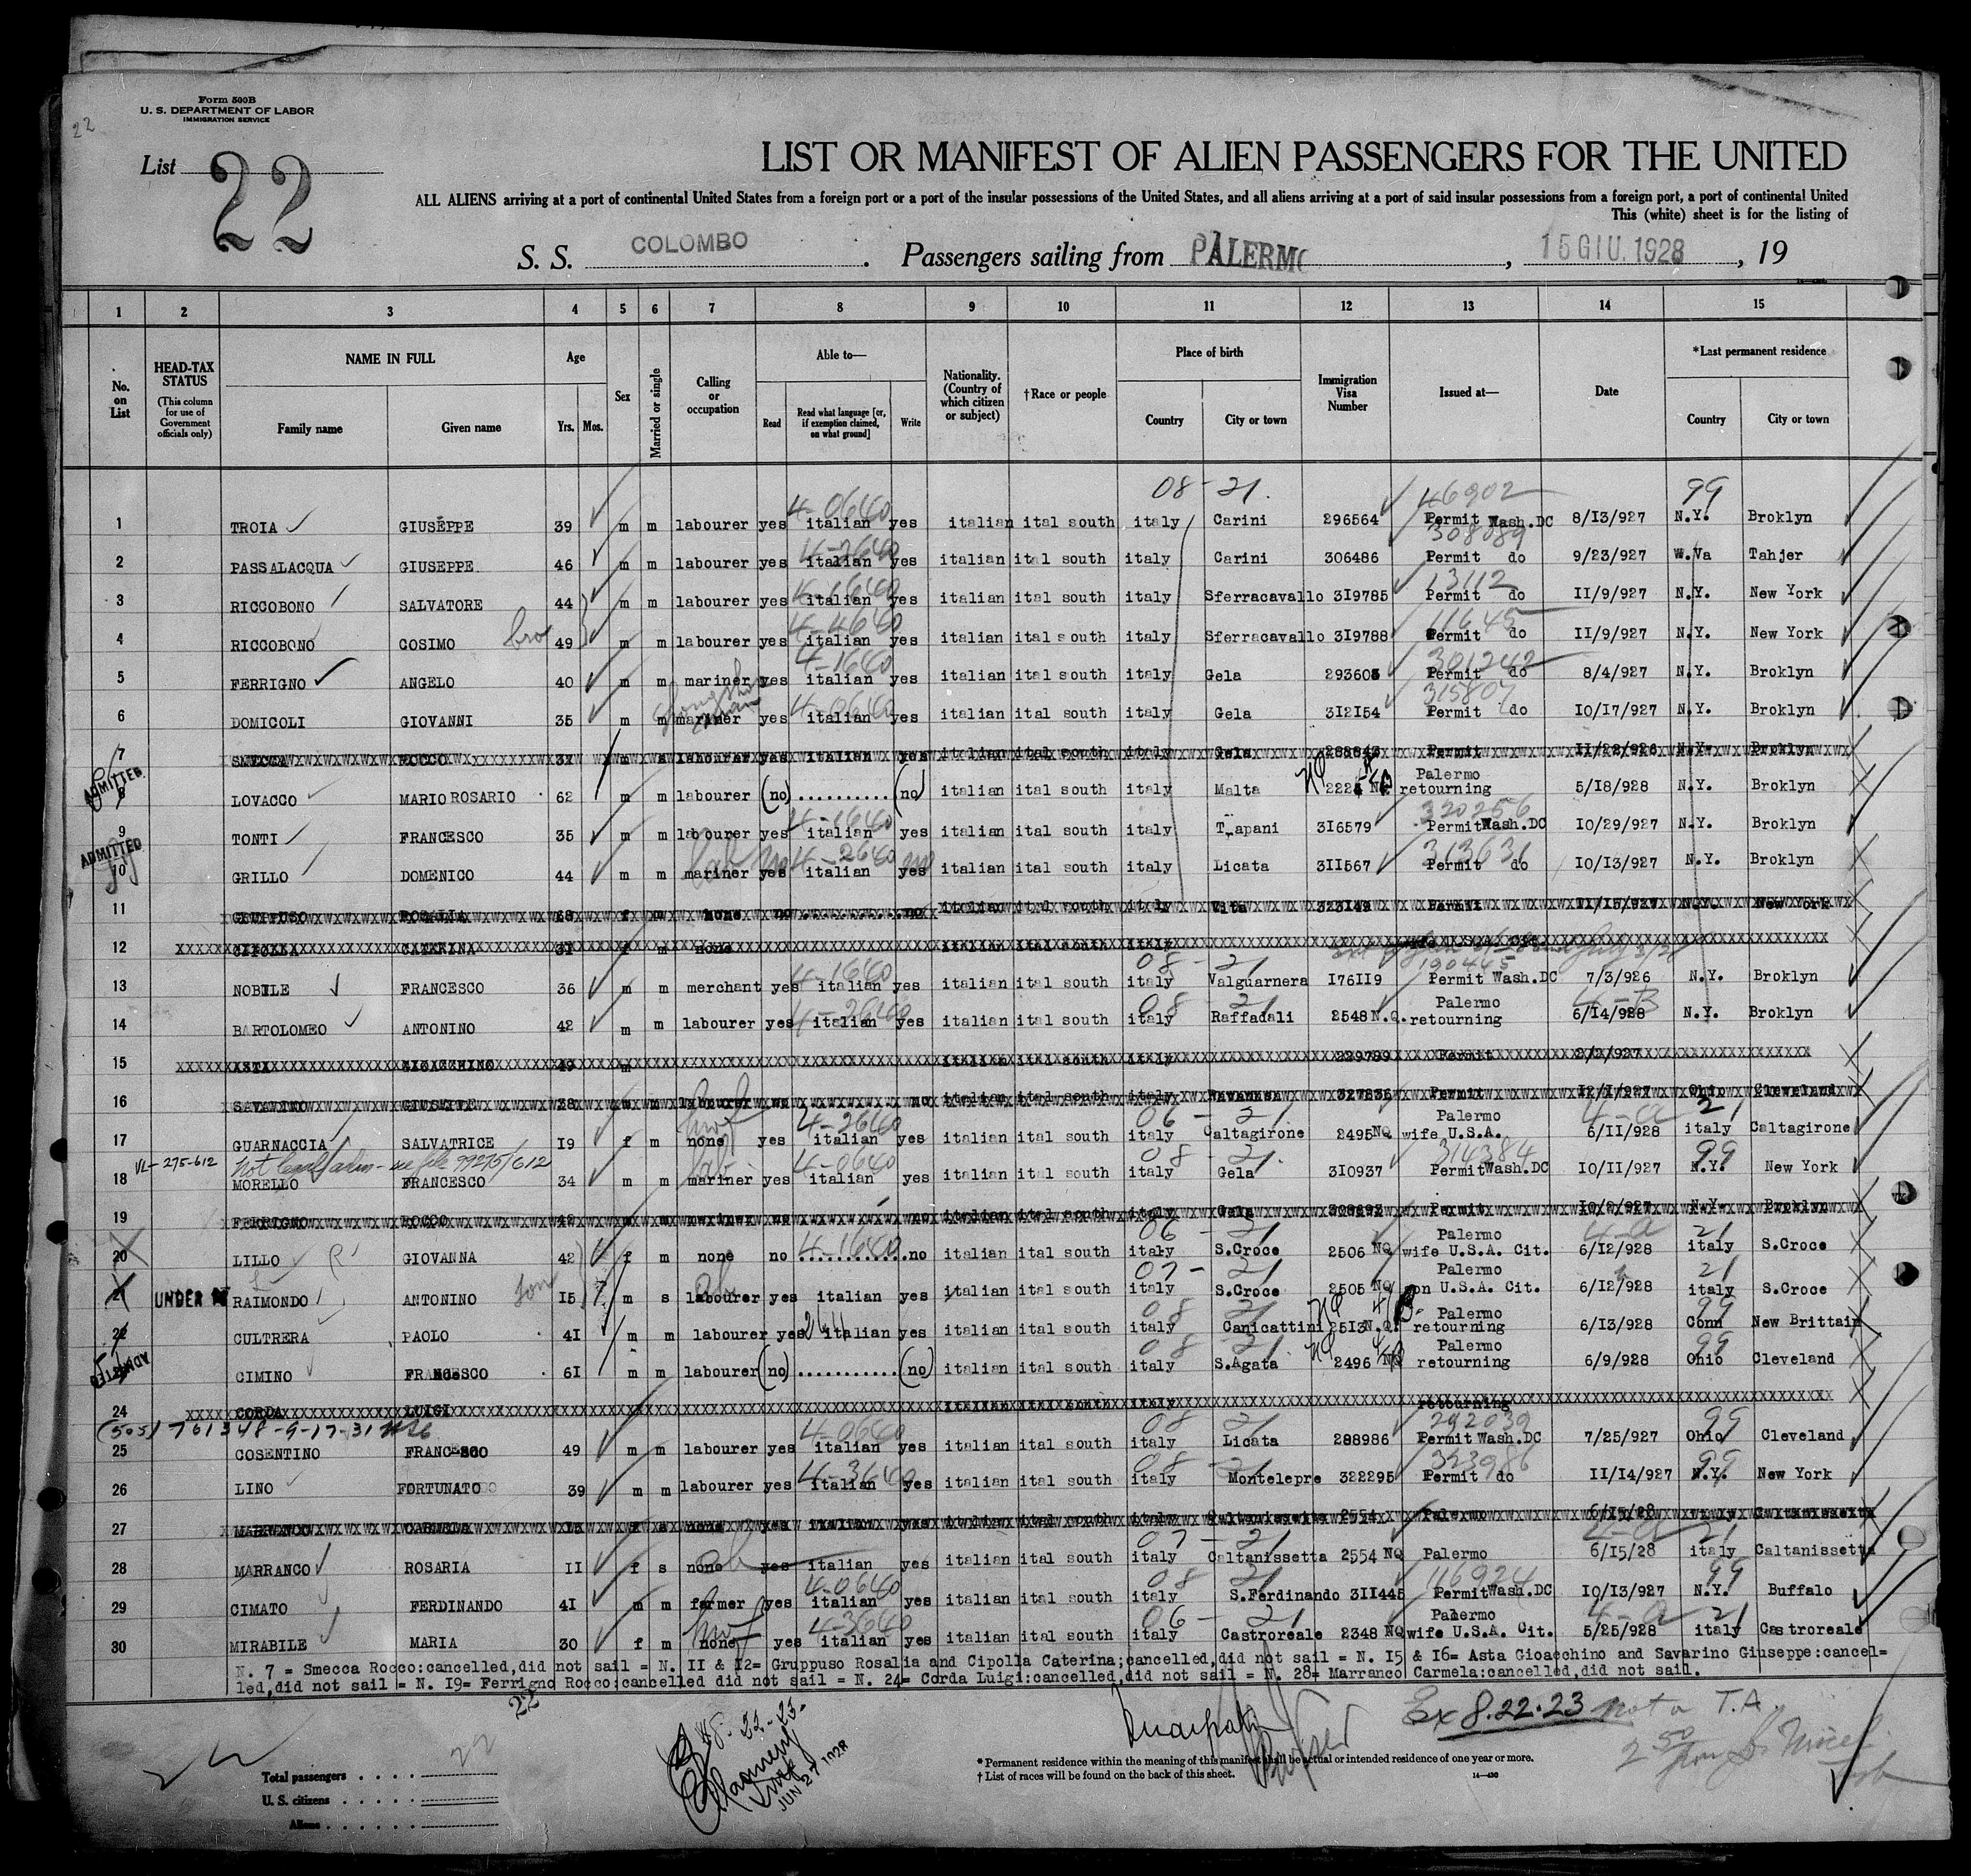 22
Form 500B
U. S. DEPARTMENT OF LABOR
IMMIGRATION SERVICE
List 22
LIST OR MANIFEST OF ALIEN PASSENGERS FOR THE UNITED
ALL ALIENS arriving at a port of continental United States from a foreign port or a port of the insular possessions of the United States, and all aliens arriving at a port of said insular possessions from a foreign port, a port of continental United
This (white) sheet is for the listing of
S. S. COLOMBO. Passengers sailing from PALERMO, 15 GIU. 1928, 19
1 2 3 4 5 6 7 8 9 10 11 12 13 14 15
No. on List
HEAD-TAX STATUS (This column for use of Government officials only)
NAME IN FULL Family name Given name
Age Yrs. Mos.
Sex
Married or single
Calling or occupation
Able to— Read Read what language [or, if exemption claimed, on what ground] Write
Nationality. (Country of which citizen or subject)
†Race or people
Place of birth Country City or town
Immigration Visa Number
Issued at—
Date
*Last permanent residence Country City or town
08 - 21. 46902 99
4-0640
1 TROIA GIUSEPPE 39 m m labourer yes italian yes italian ital south italy Carini 296564 Permit Wash.DC 8/13/927 N.Y. Broklyn
4-2640 308089
2 PASSALACQUA GIUSEPPE 46 m m labourer yes italian yes italian ital south italy Carini 306486 Permit do 9/23/927 W.Va Tahjer
4-1640 13112
3 RICCOBONO SALVATORE 44 m m labourer yes italian yes italian ital south italy Sferracavallo 319785 Permit do 11/9/927 N.Y. New York
4-4640 11645
4 RICCOBONO COSIMO bro 49 m m labourer yes italian yes italian ital south italy Sferracavallo 319788 Permit do 11/9/927 N.Y. New York
4-1640 301242
5 FERRIGNO ANGELO 40 m m mariner yes italian yes italian ital south italy Gela 293605 Permit do 8/4/927 N.Y. Broklyn
4-0640 315807
6 DOMICOLI GIOVANNI 35 m m mariner yes italian yes italian ital south italy Gela 312154 Permit do 10/17/927 N.Y. Broklyn
7 SMECCA ROCCO 37 m labourer yes italian yes italian ital south italy Gela Permit 11/22/926 N.Y. Broklyn
ADMITTED
Palermo
8 LOVACCO MARIO ROSARIO 62 m m labourer (no) .......... (no) italian ital south italy Malta retourning 5/18/928 N.Y. Broklyn
4-1640 320256
9 TONTI FRANCESCO 35 m m labourer yes italian yes italian ital south italy T_apani 316579 Permit Wash.DC 10/29/927 N.Y. Broklyn
ADMITTED
lab no 4-2640 no 313631
10 GRILLO DOMENICO 44 m m mariner yes italian yes italian ital south italy Licata 311567 Permit do 10/13/927 N.Y. Broklyn
11 GRUPPUSO ROSALIA f m none no .......... no italian ital south italy Vita Permit N.Y. New York
12 CIPOLLA CATERINA 31 f m none italian ital south italy
4-1640 08 - 21 190445
13 NOBILE FRANCESCO 36 m m merchant yes italian yes italian ital south italy Valguarnera 176119 Permit Wash.DC 7/3/926 N.Y. Broklyn
4-2640 08 - 21 Palermo 4-B
14 BARTOLOMEO ANTONINO 42 m m labourer yes italian yes italian ital south italy Raffadali 2548 N.Q. retourning 6/14/928 N.Y. Broklyn
15 ASTI GIOACCHINO 49 m italian ital south italy 229799 Permit 2/2/927
16 SAVARINO GIUSEPPE 38 m m labourer no no italian ital south italy Ravanusa 327836 Permit 12/1/927 Ohio Cleveland
hwf 4-2640 06 - 21 Palermo 4-a 21
17 GUARNACCIA SALVATRICE 19 f m none yes italian yes italian ital south italy Caltagirone 2495 NQ wife U.S.A. 6/11/928 italy Caltagirone
VL- 275-612 not legal adm - see file 99275/612 lab 4-0640 08 - 21. 314384 99
18 MORELLO FRANCESCO 34 m m mariner yes italian yes italian ital south italy Gela 310937 Permit Wash.DC 10/11/927 N.Y. New York
19 FERRIGNO ROCCO 42 m m mariner no no italian ital south italy Gela Permit 10/2/927 N.Y. Broklyn
4-1640 06 - 21 Palermo 4-a 21
20 LILLO GIOVANNA 42 f m none no .......... no italian ital south italy S.Croce 2506 NQ wife U.S.A. Cit. 6/12/928 italy S.Croce
07 - 21 Palermo 21
21 UNDER RAIMONDO ANTONINO son 15 7 m s labourer yes italian yes italian ital south italy S.Croce 2505 NQ on U.S.A. Cit. 6/12/928 italy S.Croce
08 21 Palermo 99
22 CULTRERA PAOLO 41 m m labourer yes italian yes italian ital south italy Canicattini 2513 N.Q. retourning 6/13/928 Conn New Brittain
ADMITTED
08 21 Palermo 99
CIMINO FRANCESCO 61 m m labourer (no) .......... (no) italian ital south italy S.Agata 2496 NQ retourning 6/9/928 Ohio Cleveland
24 CORDA LUIGI italian ital south italy retourning
(505) 761348 - 9-17-31
4-0640 08 21 292039 99
25 COSENTINO FRANCESCO 49 m m labourer yes italian yes italian ital south italy Licata 288986 Permit Wash.DC 7/25/927 Ohio Cleveland
4-3640 08 - 21 323986 99
26 LINO FORTUNATO 39 m m labourer yes italian yes italian ital south italy Montelepre 322295 Permit do 11/14/927 N.Y. New York
27 MARRANCO CARMELA f s none yes italian yes italian ital south italy Caltanissetta 2554 Palermo 6/15/28 italy Caltanissetta
07 - 21 4-a 21
28 MARRANCO ROSARIA 11 f s none yes italian yes italian ital south italy Caltanissetta 2554 NQ Palermo 6/15/28 italy Caltanissetta
4-0640 08 21 116924 99
29 CIMATO FERDINANDO 41 m m farmer yes italian yes italian ital south italy S.Ferdinando 311445 Permit Wash.DC 10/13/927 N.Y. Buffalo
hwf 4-3640 06 - 21 Palermo 4-a 21
30 MIRABILE MARIA 30 f m none yes italian yes italian ital south italy Castroreale 2348 NQ wife U.S.A. Cit. 5/25/928 italy Castroreale
N. 7 = Smecca Rocco:cancelled,did not sail = N. 11 & 12= Gruppuso Rosalia and Cipolla Caterina;cancelled,did not sail = N. 15 & 16= Asta Gioacchino and Savarino Giuseppe:cancel=
led,did not sail = N. 19= Ferrigno Rocco:cancelled did not sail = N. 24= Corda Luigi:cancelled,did not sail = N. 28= Marranco Carmela:cancelled,did not sail.
22
Ex 8.22.23 not a T.A.
JUN 27 1928
Total passengers . . . . 22
U. S. citizens . . . . .
Aliens . . . . .
* Permanent residence within the meaning of this manifest shall be actual or intended residence of one year or more.
† List of races will be found on the back of this sheet.
14—430